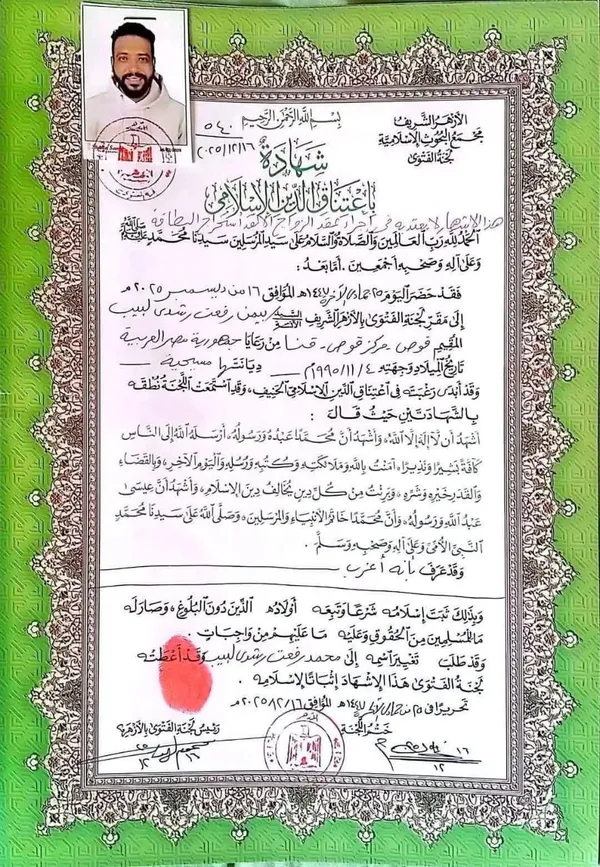 بسم الله الرحمن الرحيم
الأزهر الشريف
مجمع البحوث الإسلامية
لجنة الفتوى
٥٤٠
٢٠٢٥/١٢/١٦
شهادة
باعتناق الدين الإسلامي
هذا الإشهار لا يعتد به في إجراء عقد الزواج
الحمد لله رب العالمين والصلاة والسلام على سيد المرسلين سيدنا محمد ﷺ
وعلى آله وصحبه أجمعين . أما بعد :
فقد حضر اليوم ٢٥ جمادى الآخرة ١٤٤٧هـ الموافق ١٦ من ديسمبر ٢٠٢٥م
إلى مقر لجنة الفتوى بالأزهر الشريف السيد/ بيمن رفعت رشدى لبيب
المقيم قوص - مركز قوص - قنا من رعايا جمهورية مصر العربية
تاريخ الميلاد وجهته ١٩٩٥/١١/٤ ديانتها مسيحية
وقد أبدى رغبته في اعتناق الدين الإسلامي الحنيف، وقد استمعت اللجنة نطقه
بالشهادتين حيث قال :
أشهد أن لا إله إلا الله، وأشهد أن محمدا عبده ورسوله، أرسله الله إلى الناس
كافة بشيرا ونذيرا، آمنت بالله وملائكته وكتبه ورسله واليوم الآخر، وبالقضاء
والقدر خيره وشره، وبرئت من كل دين يخالف دين الإسلام، وأشهد أن عيسى
عبد الله ورسوله، وأن محمدا خاتم الأنبياء والمرسلين، وصلى الله على سيدنا محمد
النبي الأمي وعلى آله وصحبه وسلم .
وقد عرف بأنه أعزب
وبذلك ثبت إسلامه شرعا وتبعه أولاده الذين دون البلوغ، وصار له
ما للمسلمين من الحقوق وعليه ما عليهم من واجبات .
وقد طلب تغيير اسمه إلى محمد رفعت رشدى لبيب وقد أعطته
لجنة الفتوى هذا الإشهاد إثباتا لإسلامه .
تحريرا في ٢٥ من ١٤٤٧هـ الموافق ٢٠٢٥/١٢/١٦م
ختم اللجنة
رئيس لجنة الفتوى بالأزهر